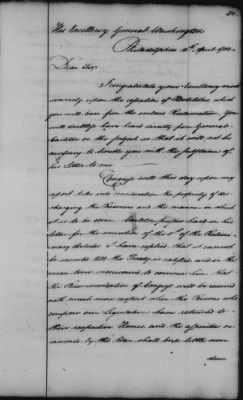 His Excellency General Washington
Philadelphia April 1783
Dear Sir
I congratulate your Excellency most
sincerely upon the cessation of Hostilities which
you will learn from the enclosed Proclamation. You
will doubtless have heard directly from General
Carleton on the subject so that it will not be
necessary to trouble you with the substance of
his letter to me
Congress will this day upon my
report take into consideration the propriety of dis
charging the Prisoners and the manner in which
it is to be done. presses hard in his
letter for the execution of the 5th of the Prelimi
nary Articles I have replied that it cannot
be executed till the Treaty is ratified, and in the
mean time endeavored to convince him that
the Recommendation of Congress will be received
with much more respect when the Persons who
compose our Legislatures have returned to
their respective Homes, and the asperities oc
casioned by the War shall have little worn
down